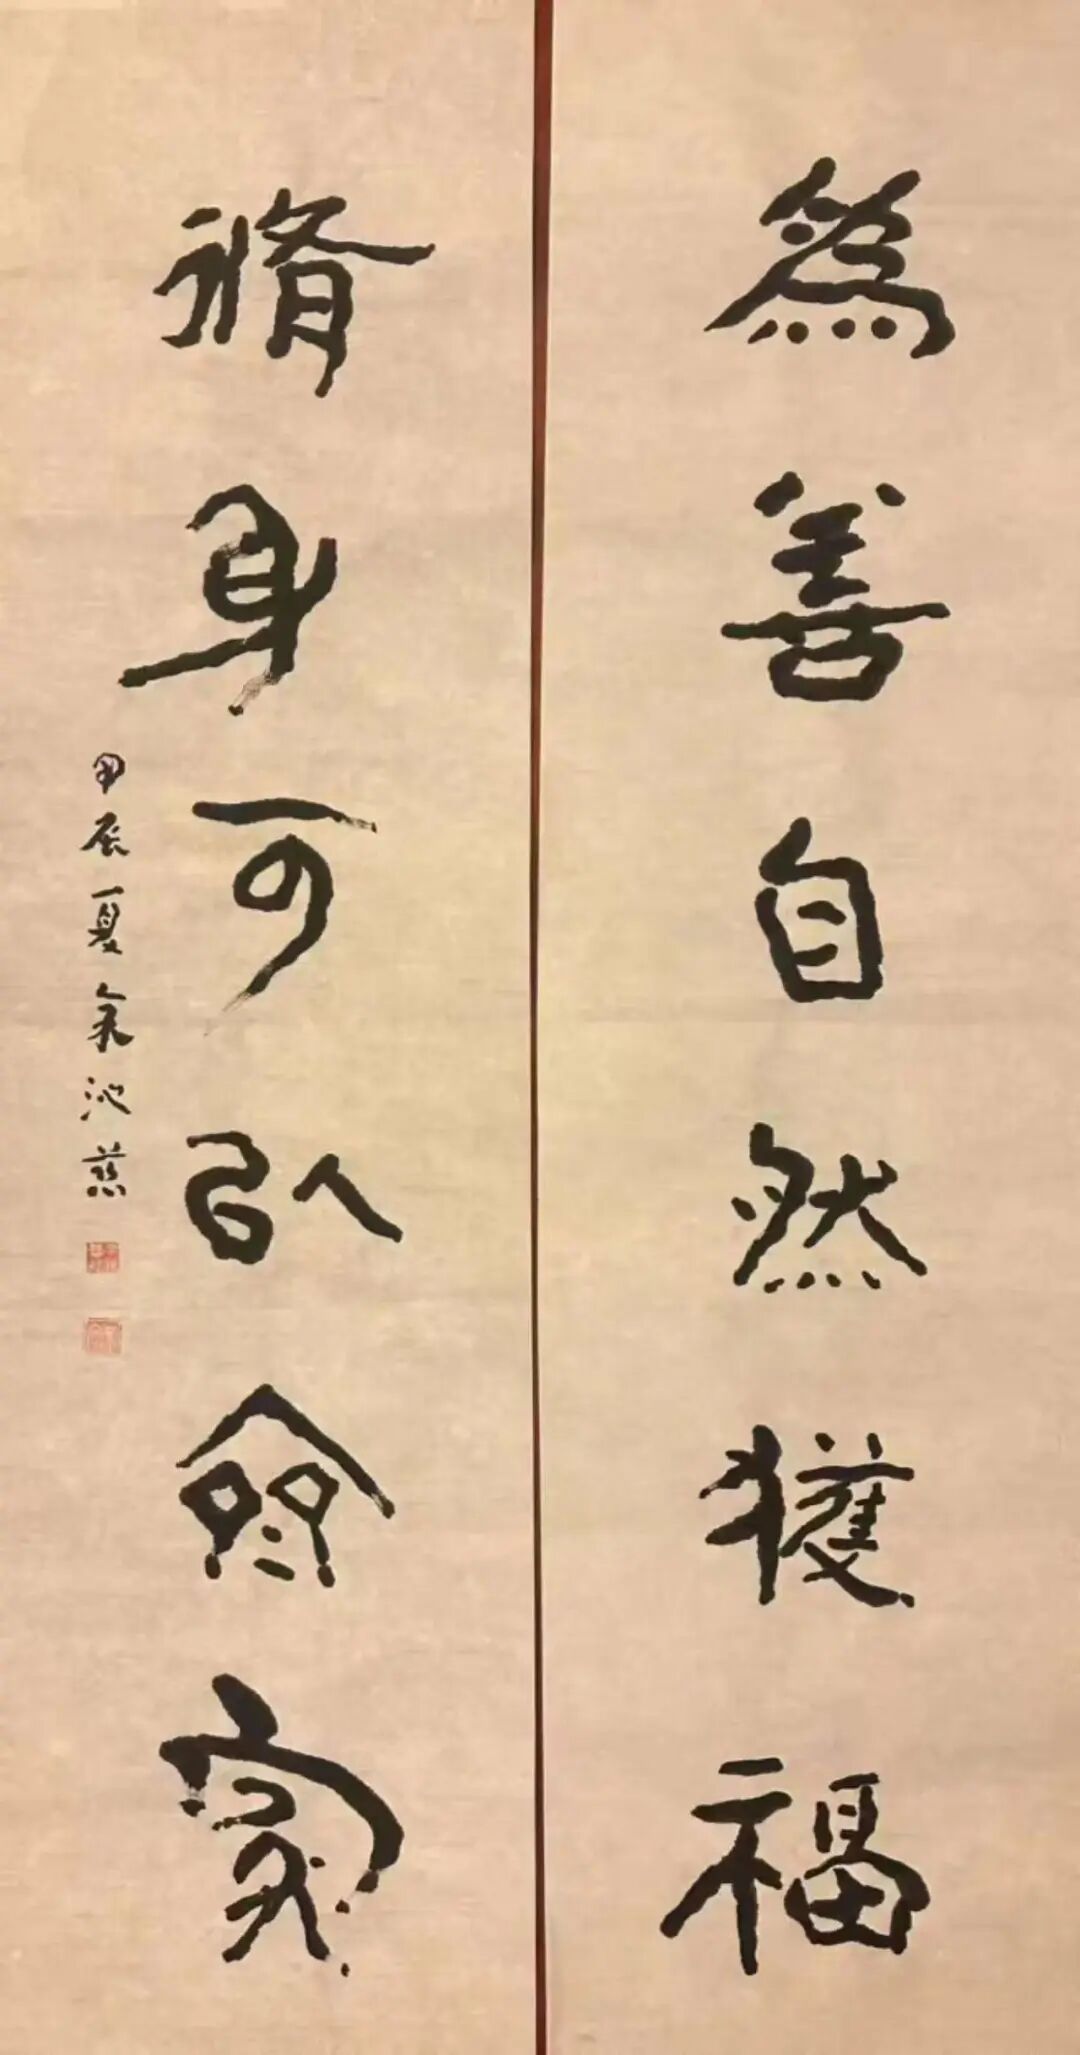 為善自然獲福
脩身可以齊家
甲辰夏氣沁慈